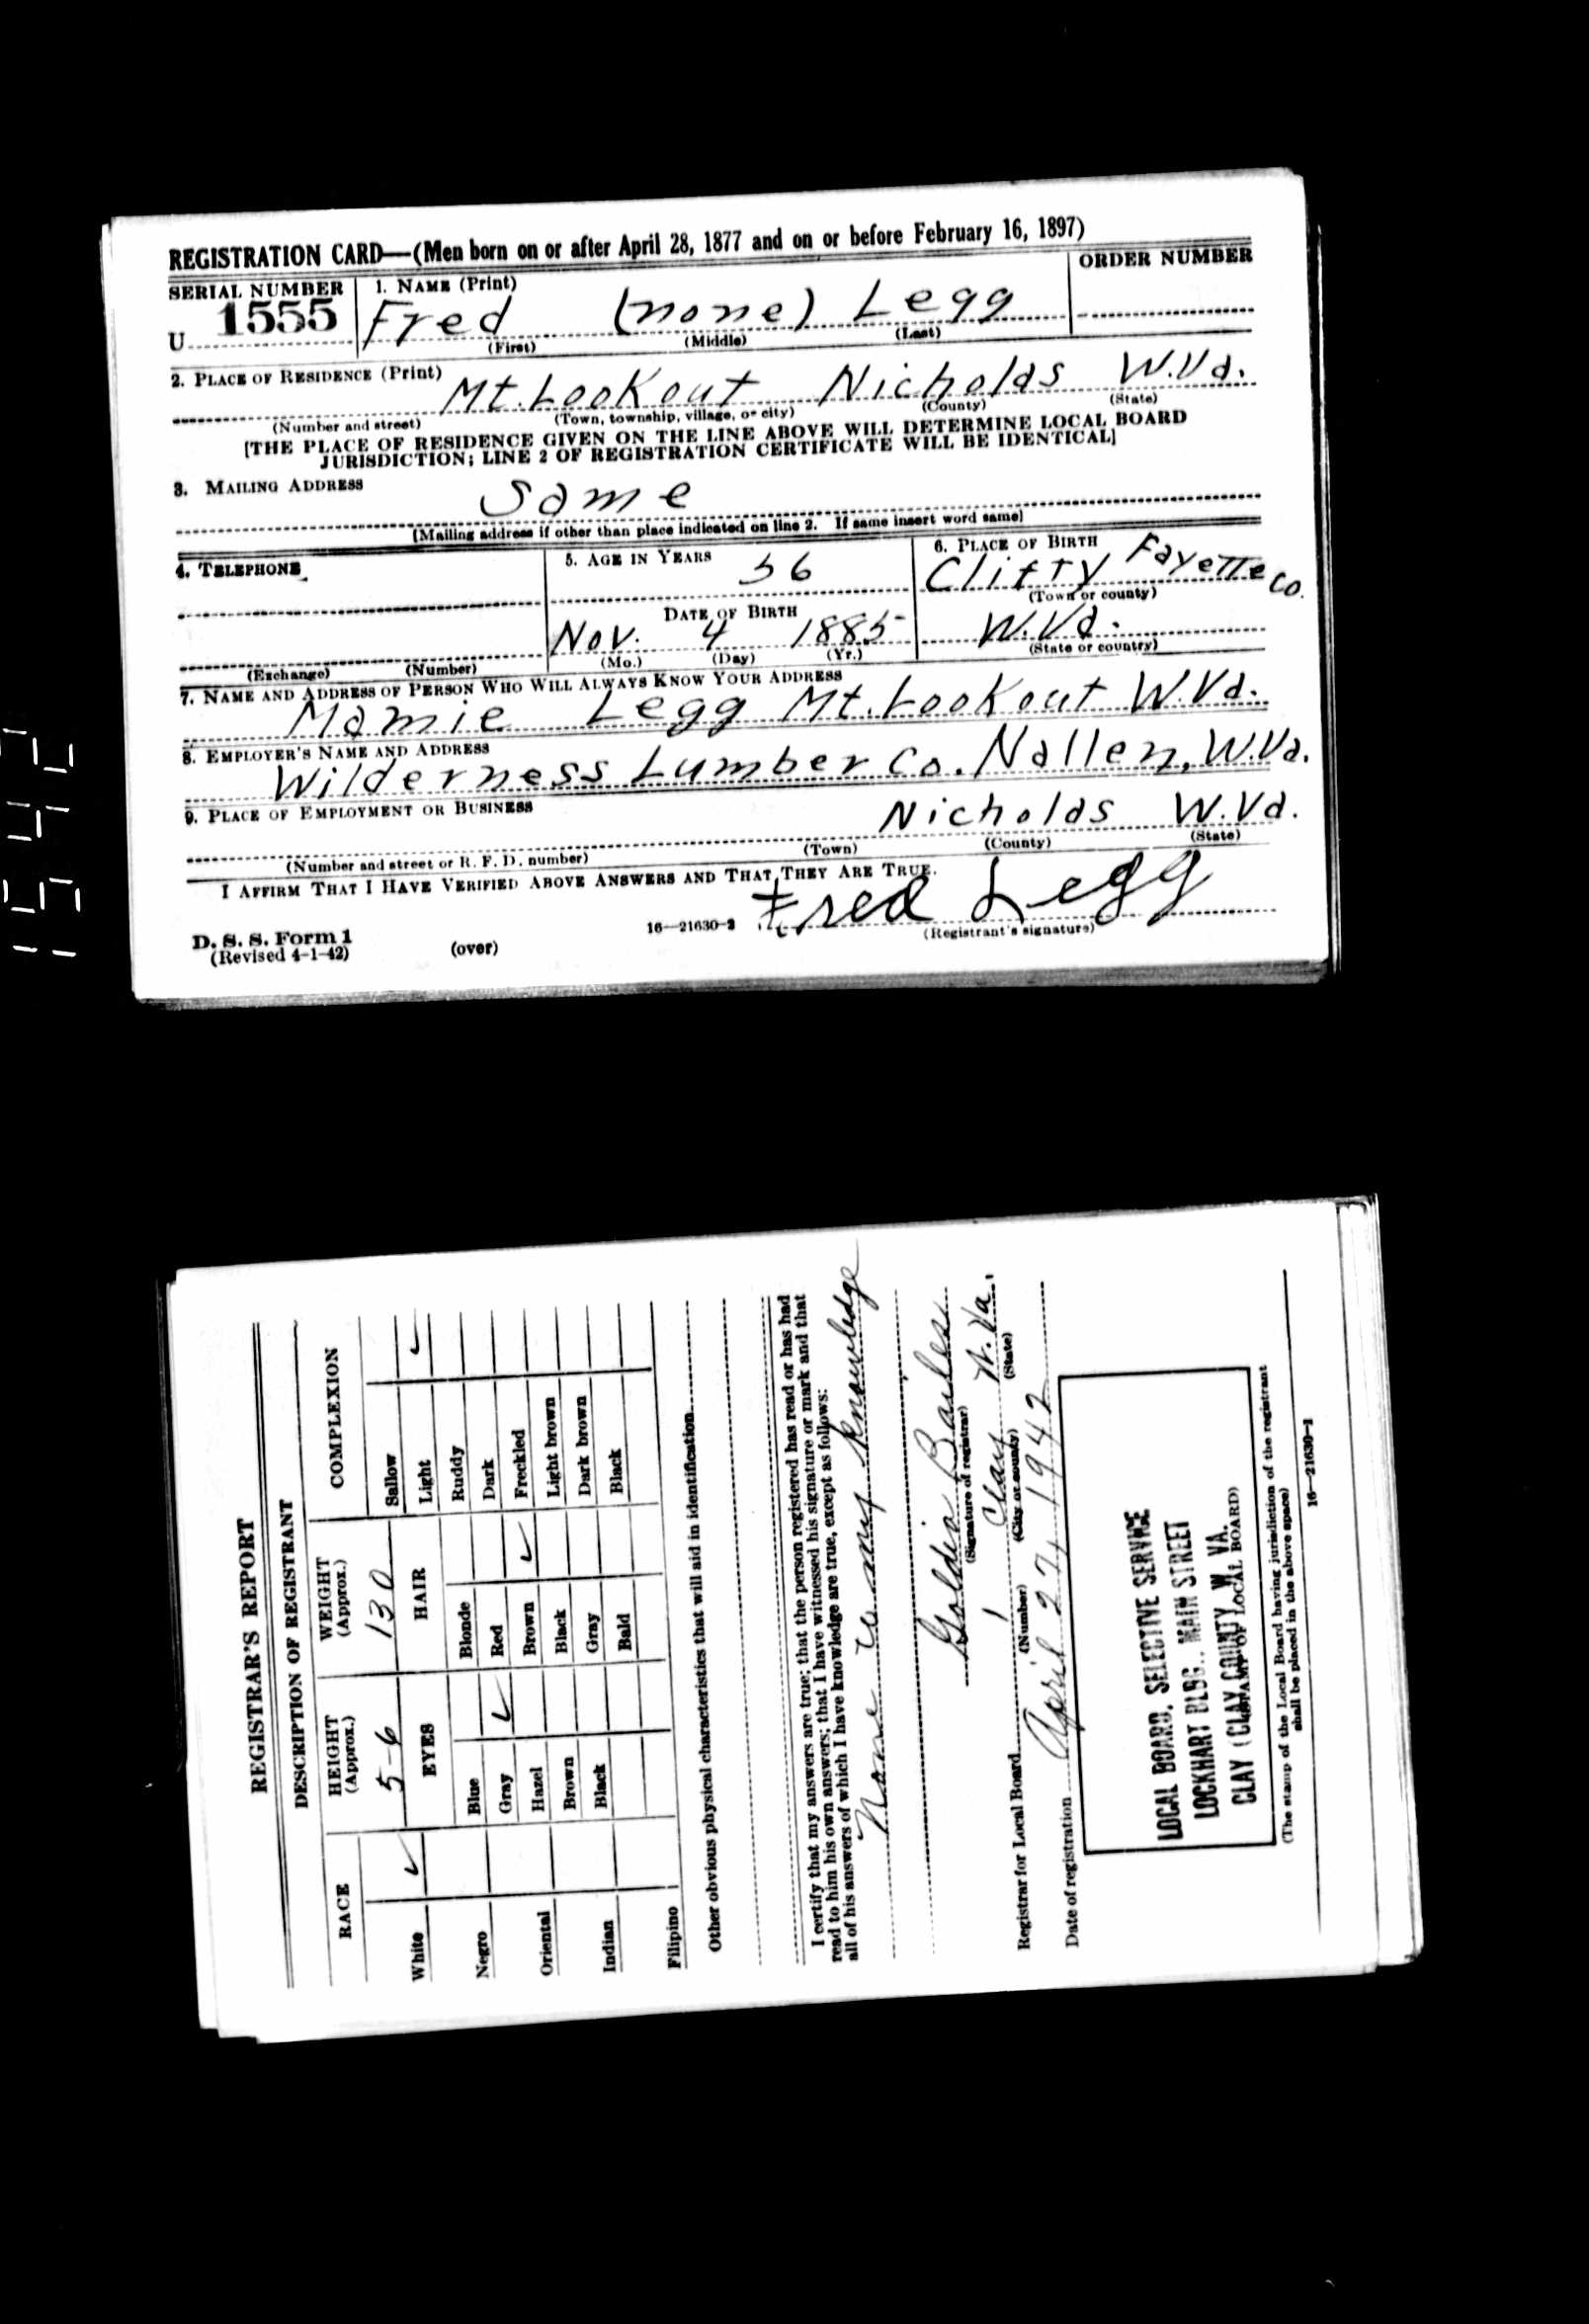 REGISTRATION CARD—(Men born on or after April 28, 1877 and on or before February 16, 1897)
SERIAL NUMBER
1. NAME (Print)
ORDER NUMBER
U 1555
Fred (none) Legg
(First) (Middle) (Last)
2. PLACE OF RESIDENCE (Print)
Mt. Lookout Nicholas W.Va.
(Number and street) (Town, township, village, or city) (County) (State)
[THE PLACE OF RESIDENCE GIVEN ON THE LINE ABOVE WILL DETERMINE LOCAL BOARD
JURISDICTION; LINE 2 OF REGISTRATION CERTIFICATE WILL BE IDENTICAL]
3. MAILING ADDRESS
Same
[Mailing address if other than place indicated on line 2. If same insert word same]
4. TELEPHONE
5. AGE IN YEARS
56
6. PLACE OF BIRTH
Clifty Fayette Co.
(Town or county)
DATE OF BIRTH
Nov. 4 1885
(Mo.) (Day) (Yr.)
W.Va.
(State or country)
(Exchange) (Number)
7. NAME AND ADDRESS OF PERSON WHO WILL ALWAYS KNOW YOUR ADDRESS
Mamie Legg Mt. Lookout W.Va.
8. EMPLOYER'S NAME AND ADDRESS
Wilderness Lumber Co. Nallen, W.Va.
9. PLACE OF EMPLOYMENT OR BUSINESS
Nicholas W.Va.
(Number and street or R. F. D. number) (Town) (County) (State)
I AFFIRM THAT I HAVE VERIFIED ABOVE ANSWERS AND THAT THEY ARE TRUE.
Fred Legg
(Registrant's signature)
D. S. S. Form 1
(Revised 4-1-42) (over) 16—21630-2
REGISTRAR'S REPORT
DESCRIPTION OF REGISTRANT
RACE
HEIGHT (Approx.)
WEIGHT (Approx.)
COMPLEXION
5-6
130
EYES
HAIR
White ✓
Negro
Oriental
Indian
Filipino
Blue
Gray ✓
Hazel
Brown
Black
Blonde
Red
Brown ✓
Black
Gray
Bald
Sallow
Light ✓
Ruddy
Dark
Freckled
Light brown
Dark brown
Black
Other obvious physical characteristics that will aid in identification
I certify that my answers are true; that the person registered has read or has had
read to him his own answers; that I have witnessed his signature or mark and that
all of his answers of which I have knowledge are true, except as follows:
None to my knowledge
Goldia Bailes
(Signature of registrar)
Registrar for Local Board 1 Clay W. Va.
(Number) (City or county) (State)
Date of registration April 27, 1942
LOCAL BOARD, SELECTIVE SERVICE
LOCKHART BLDG., MAIN STREET
CLAY (CLAY COUNTY) W. VA.
(STAMP OF LOCAL BOARD)
(The stamp of the Local Board having jurisdiction of the registrant
shall be placed in the above space)
16—21630-1